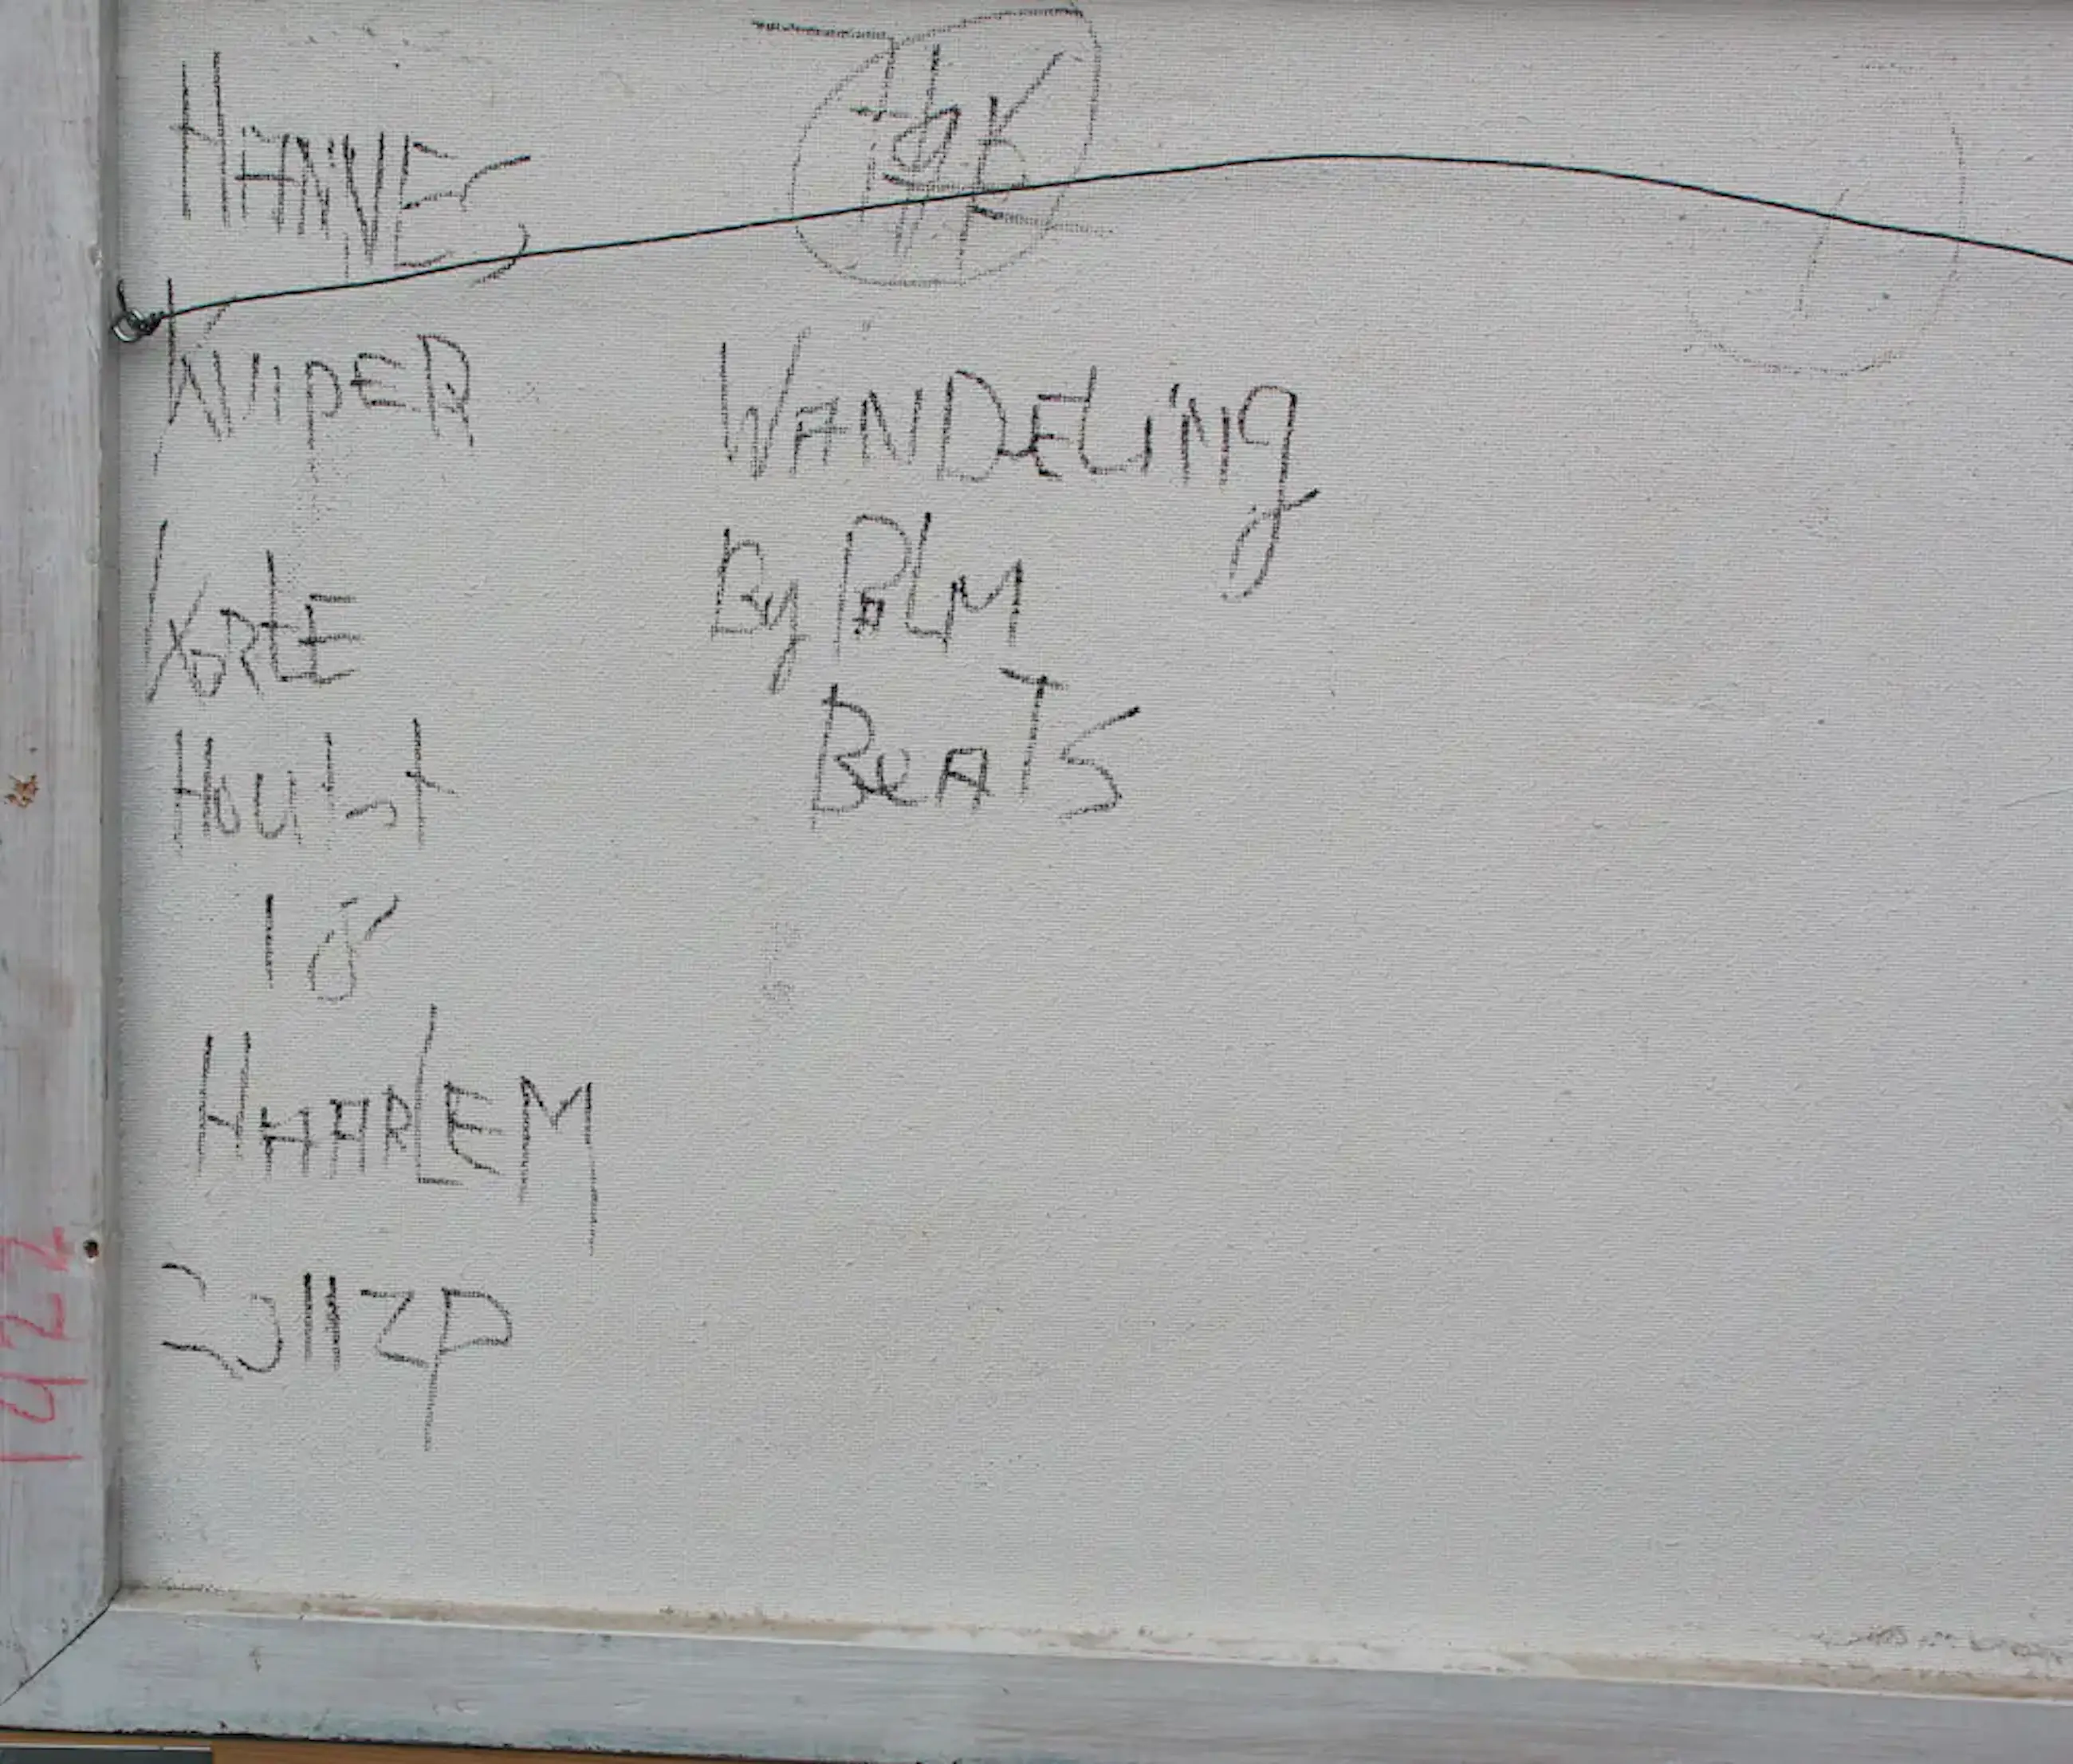 HANNES
KUIPER
KORTE
Houtst
18
HAARLEM
2011ZP
WANDELiNg
By PALM
BeATS
1422